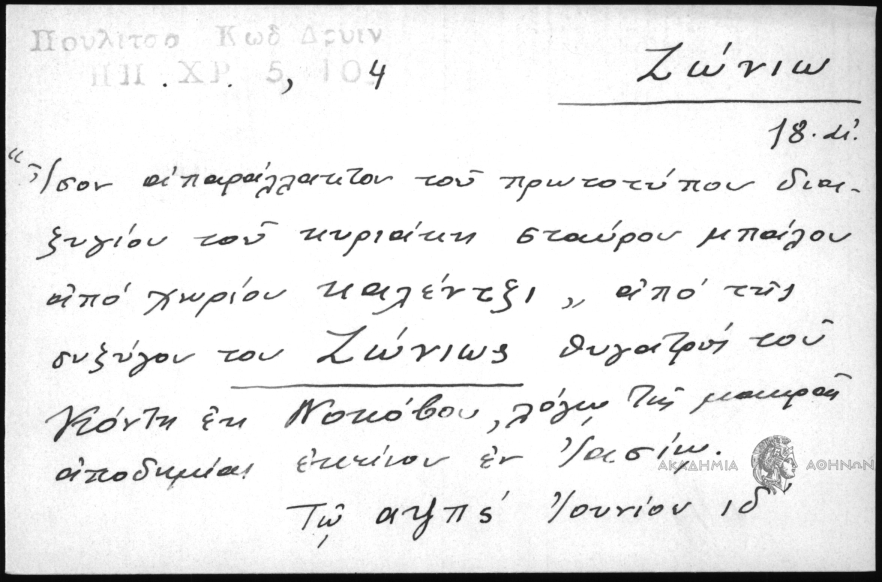 Πουλιτσο Κωδ Δρυιν
ΠΠ. ΧΡ. 5, 104
Ζώνιω
18. αἰ.
"Ἴσον ἀπαράλλακτον τοῦ πρωτοτύπου δια-
ζυγίου τοῦ κυριάκη σταύρου μπάλου
ἀπό χωρίου καλέντζι „ ἀπό τῆς
συζύγου του Ζώνιως θυγατρός τοῦ
Κόντη ἐκ Νοκόβου, λόγω τῆς μακρᾶς
ἀποδημίας ἐκείνου ἐν Ἰασίῳ.
ΑΚΑΔΗΜΙΑ ΑΘΗΝΩΝ
Τῷ αψπς' Ἰουνίου ιδ